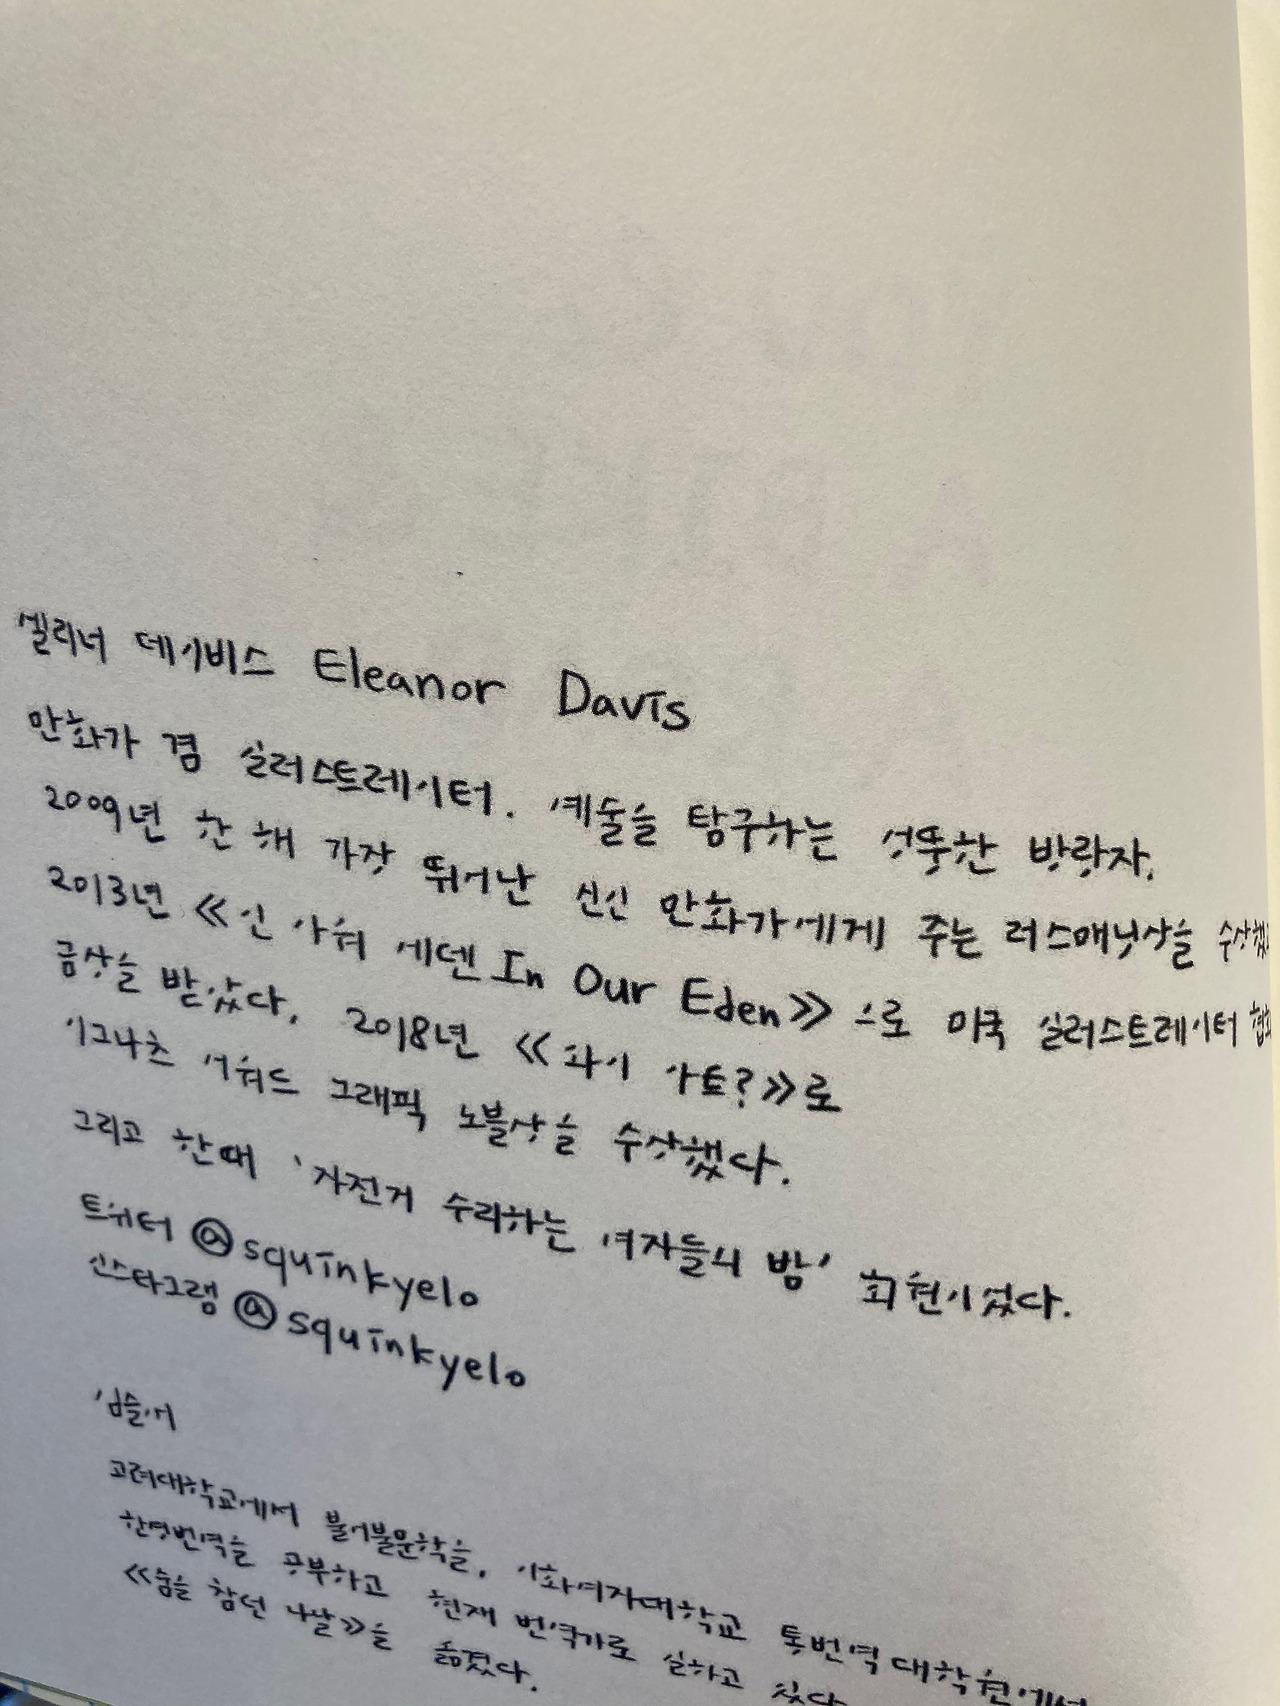 엘리너 데이비스 Eleanor Davis
만화가 겸 일러스트레이터. 예술을 탐구하는 엉뚱한 방랑자.
2009년 한 해 가장 뛰어난 신인 만화가에게 주는 러스매닝상을 수상했
2013년 《인 아워 에덴 In Our Eden》으로 미국 일러스트레이터 협회
금상을 받았다. 2018년 《와이 아트?》로
이그나츠 어워드 그래픽 노블상을 수상했다.
그리고 한때 '자전거 수리하는 여자들의 밤' 회원이었다.
트위터 @squinkyelo
인스타그램 @squinkyelo
임슬애
고려대학교에서 불어불문학을, 이화여자대학교 통번역대학원에서
한영번역을 공부하고 현재 번역가로 일하고 있다
《숨을 참던 나날》을 옮겼다.